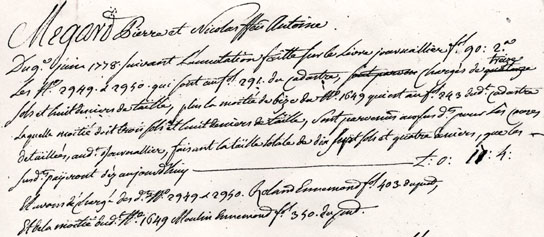 Megard Pierre et Nicolas ffeu Antoine.
Du 9.e Juin 1778. suivant l'annotation faitte sur le Livre journaillier f.o 90: 2.o
Les N.os 2949. et 2950. qui sont au f.o 291. du cadastre, chargés de treize
sols et huit deniers de taille, plus la moitié de bize du N.o 1649 qui est au f.o 243 du cadastre
laquelle moitié doit trois sols et huit deniers de taille, sont parvenus aux susd.s pour les causes
detaillés, aud.t Journaillier, faisant la taille totale de dix sept sols et quatre deniers, que les
susd.s payeront dez aujourd'huy ——— L: 0: 17: 4:
Et avons déchargé des d.s N.os 2949 et 2950. Roland Ennemond f.o 403 du pnt,
Et de la moitié dud.t N.o 1649 Moulin Ennemond f.o 350. du pnt.